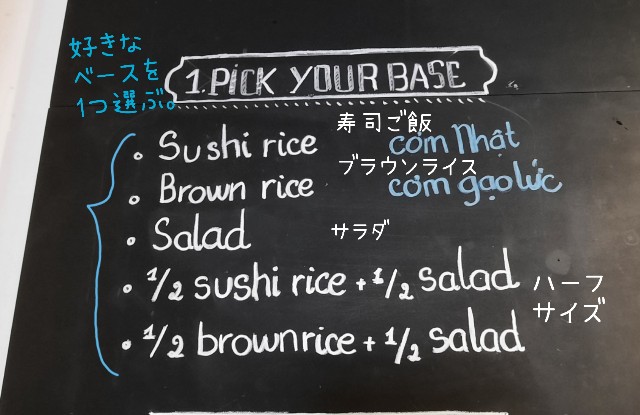 好きな
ベースを
1つ選ぶ。
1. PICK YOUR BASE
• Sushi rice 寿司ご飯 cơm Nhật
• Brown rice ブラウンライス cơm gạo lức
• Salad サラダ
• 1/2 sushi rice + 1/2 salad ハーフ
サイズ
• 1/2 brown rice + 1/2 salad